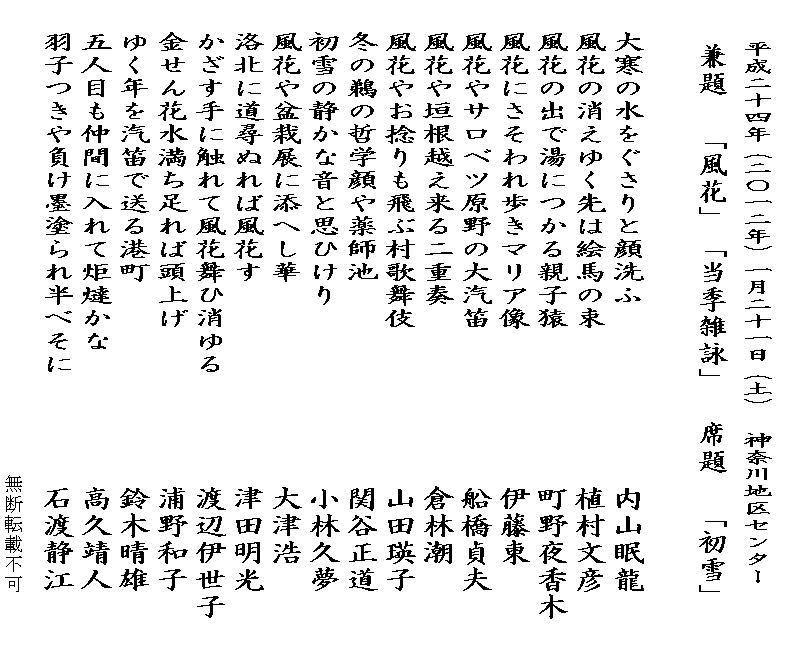 平成二十四年（二〇一二年）一月二十一日（土）　神奈川地区センター
兼題　「風花」「当季雑詠」　席題　「初雪」
大寒の水をぐさりと顔洗ふ　内山眠龍
風花の消えゆく先は絵馬の束　植村文彦
風花の出で湯につかる親子猿　町野夜香木
風花にさそわれ歩きマリア像　伊藤東
風花やサロベツ原野の大汽笛　船橋貞夫
風花や垣根越え来る二重奏　倉林潮
風花やお捻りも飛ぶ村歌舞伎　山田瑛子
冬の鵜の哲学顔や薬師池　関谷正道
初雪の静かな音と思ひけり　小林久夢
風花や盆栽展に添へし華　大津浩
洛北に道尋ぬれば風花す　津田明光
かざす手に触れて風花舞ひ消ゆる　渡辺伊世子
金せん花水満ち足れば頭上げ　浦野和子
ゆく年を汽笛で送る港町　鈴木晴雄
五人目も仲間に入れて炬燵かな　高久靖人
羽子つきや負け墨塗られ半べそに　石渡静江
無断転載不可